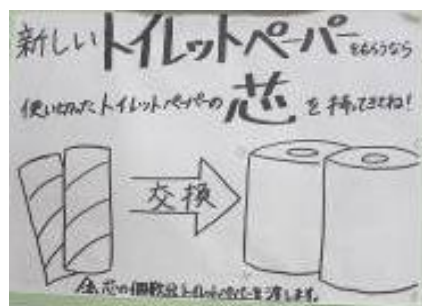 新しいトイレットペーパーをもらうなら
使い切ったトイレットペーパーの芯を持ってきてね!
交換
芯の個数分トイレットペーパーを渡します。